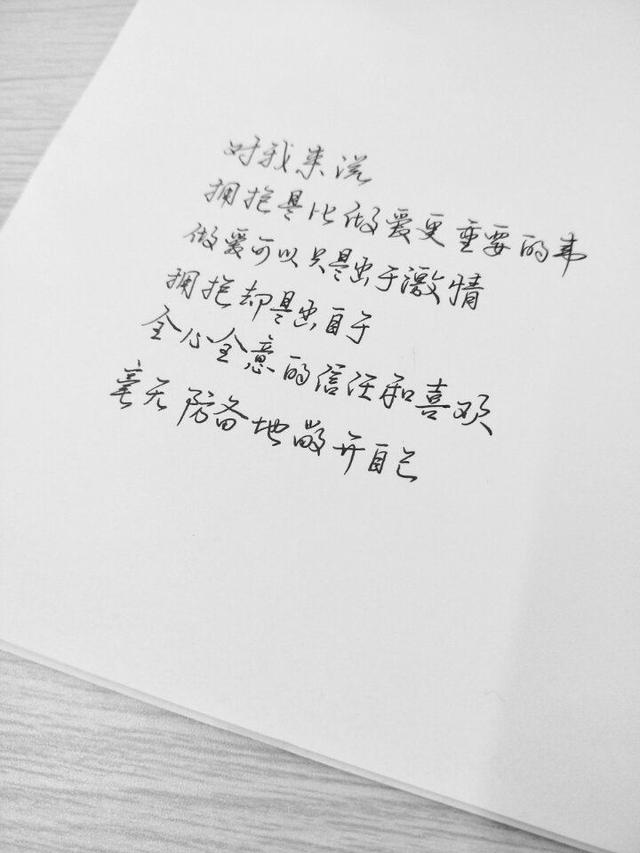 对我来说
拥抱是比做爱更重要的事
做爱可以只是出于激情
拥抱却是出自于
全心全意的信任和喜欢
毫无防备地敞开自己